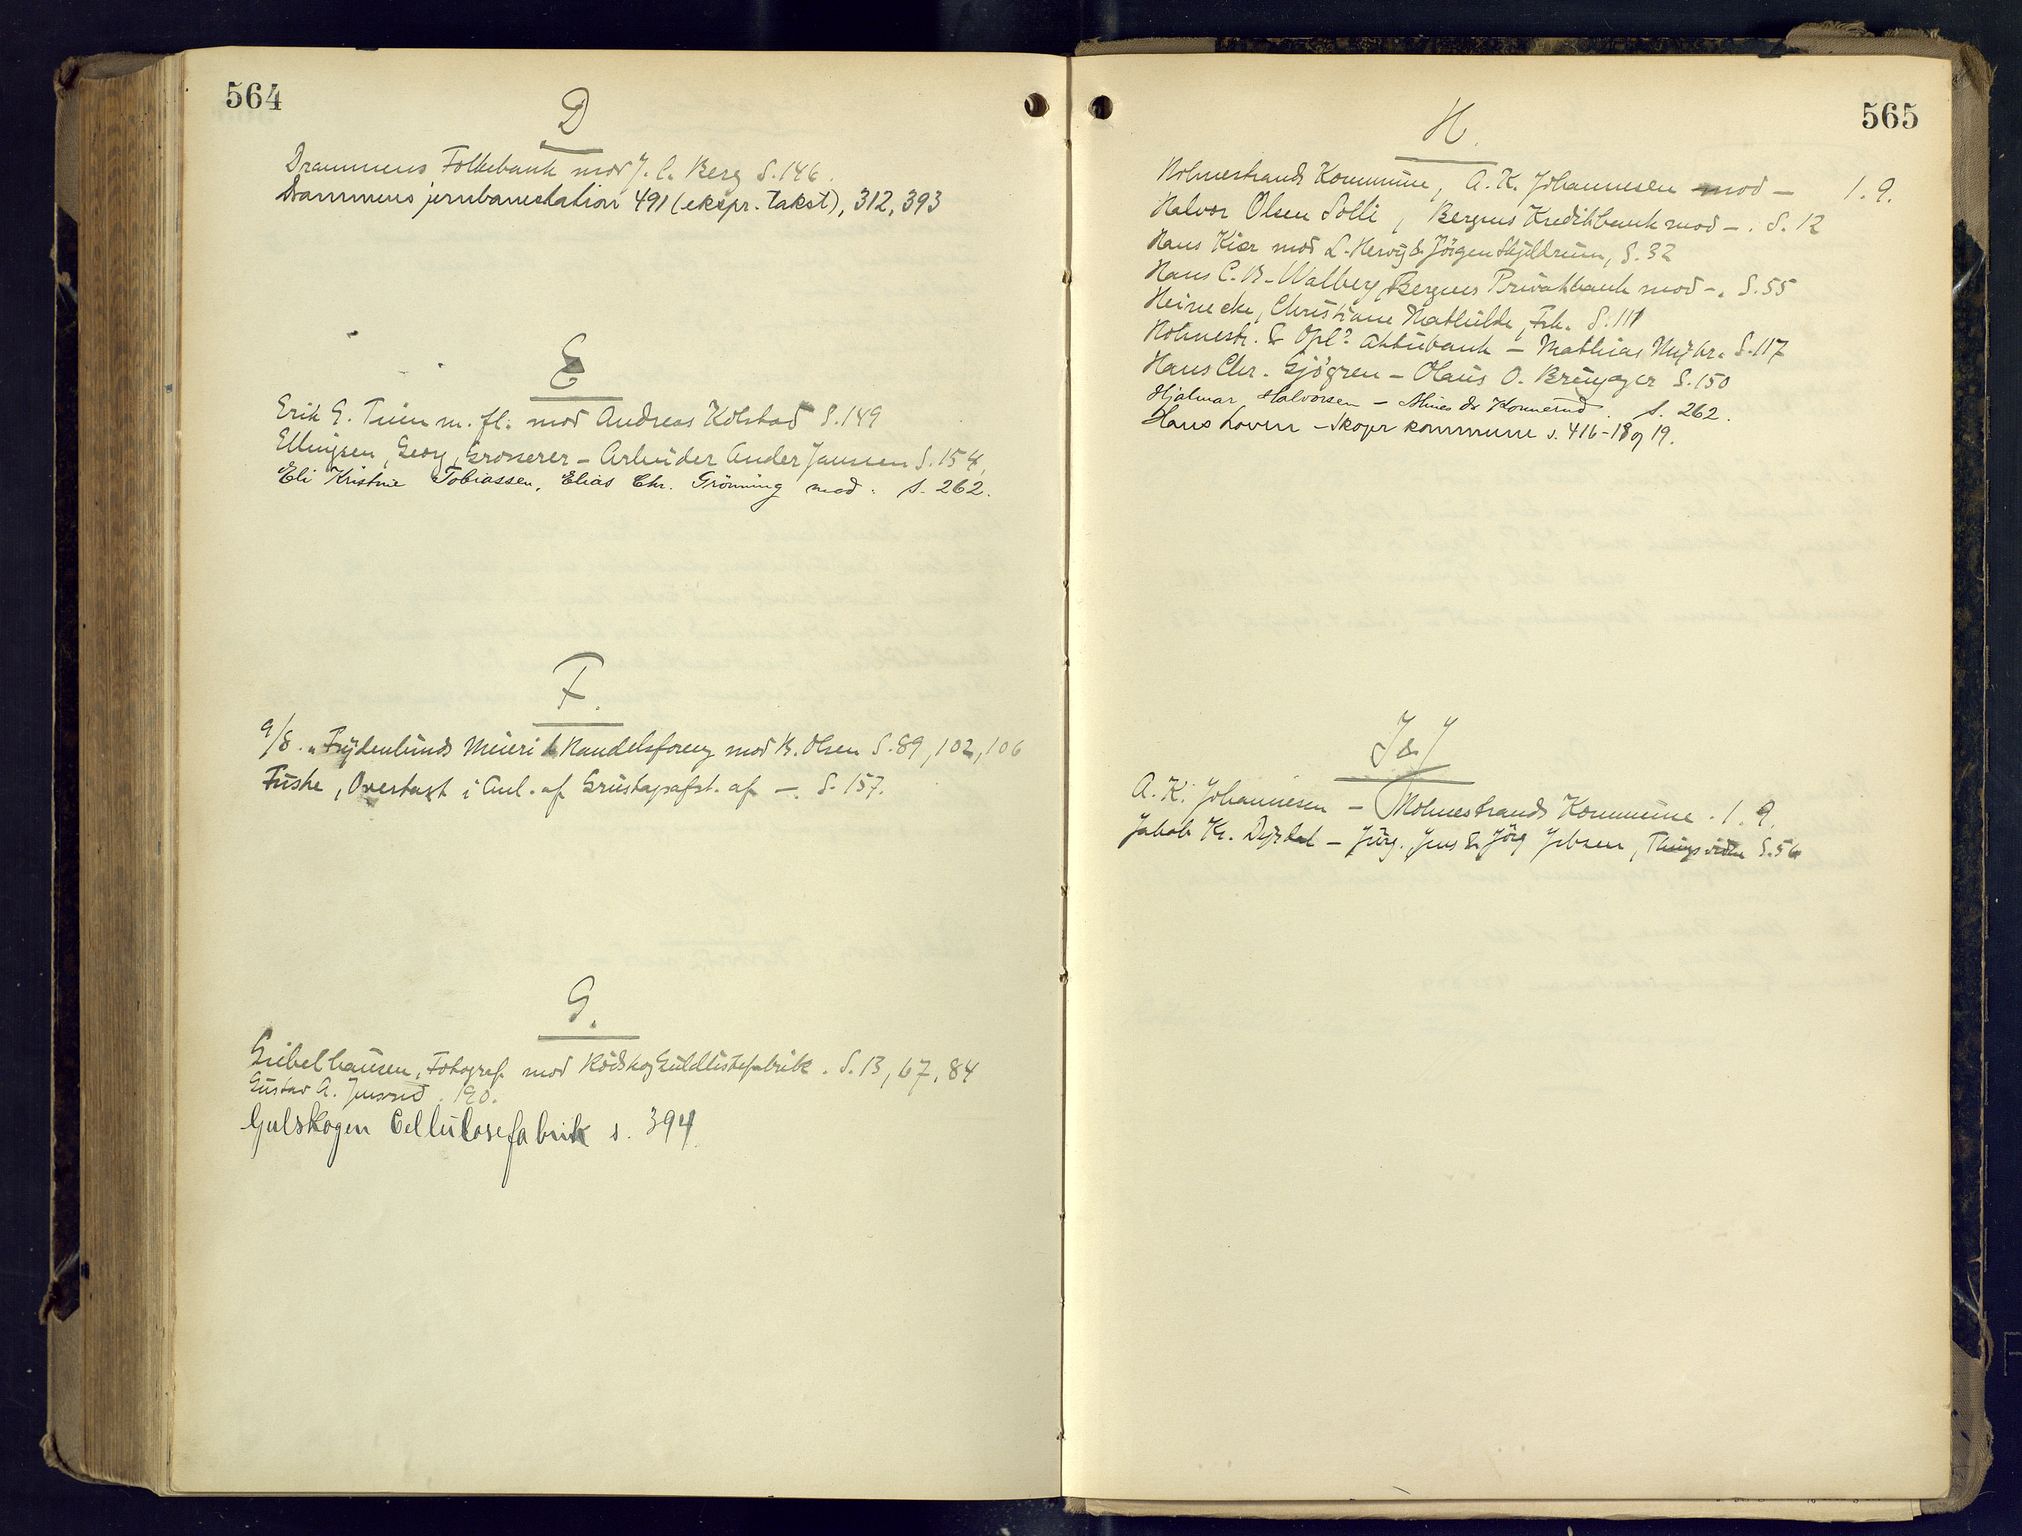 564
D
Drammens Folkebank mod J. C. Berg S. 146.
Drammens jernbanestation 491 (ekspr. takst), 312, 393
E
Erik G. Trien m. fl. mod Andreas Kolstad S. 149
Ellingsen, Georg, Grosserer – Arbeider Ander Janssen S. 154,
Eli Kristine Tobiassen, Elias Chr. Grönning mod. s. 262.
F.
9/8. "Frydenlunds Meieri & Handelsforeng mod B. Olsen S. 89, 102, 106
Fuske, Overtakst i Anl. af Grustagsafst. af –. S. 157.
G.
Giebelhausen, Fotograf. mod Rødskog Guldlistefabrik. S. 13, 67, 84
Gustav A. Jensrud. 190.
Gulskogen Cellulosefabrik s. 394.
565
H.
Holmestrands Kommune, A. K. Johannesen mod – 1. 9.
Halvor Olsen Solli, Bergens Kreditbank mod –. S. 12
Hans Kiær mod L. Hervig & Jörgen Skjeldrum, S. 32
Hans C. B. Walberg, Bergens Privatbank mod –. S. 55
Heinecke, Christiane Mathilde, Frk. S. 111
Holmestr. & Opl. Aktiebank – Mathias Nyhr. S. 117
Hans Chr. Sjögren – Olaus O. Bruager S. 150
Hjalmar Halvorsen – Mines Konnerud. s. 262.
Hans Loven – Skoger kommune s. 416–18 og 19.
I & J
A. K. Johannesen – Holmestrands Kommune. 1. 9.
Jakob Kr. Dyrdal – Jürg. Jens & Jörg Jebsen, S. 56